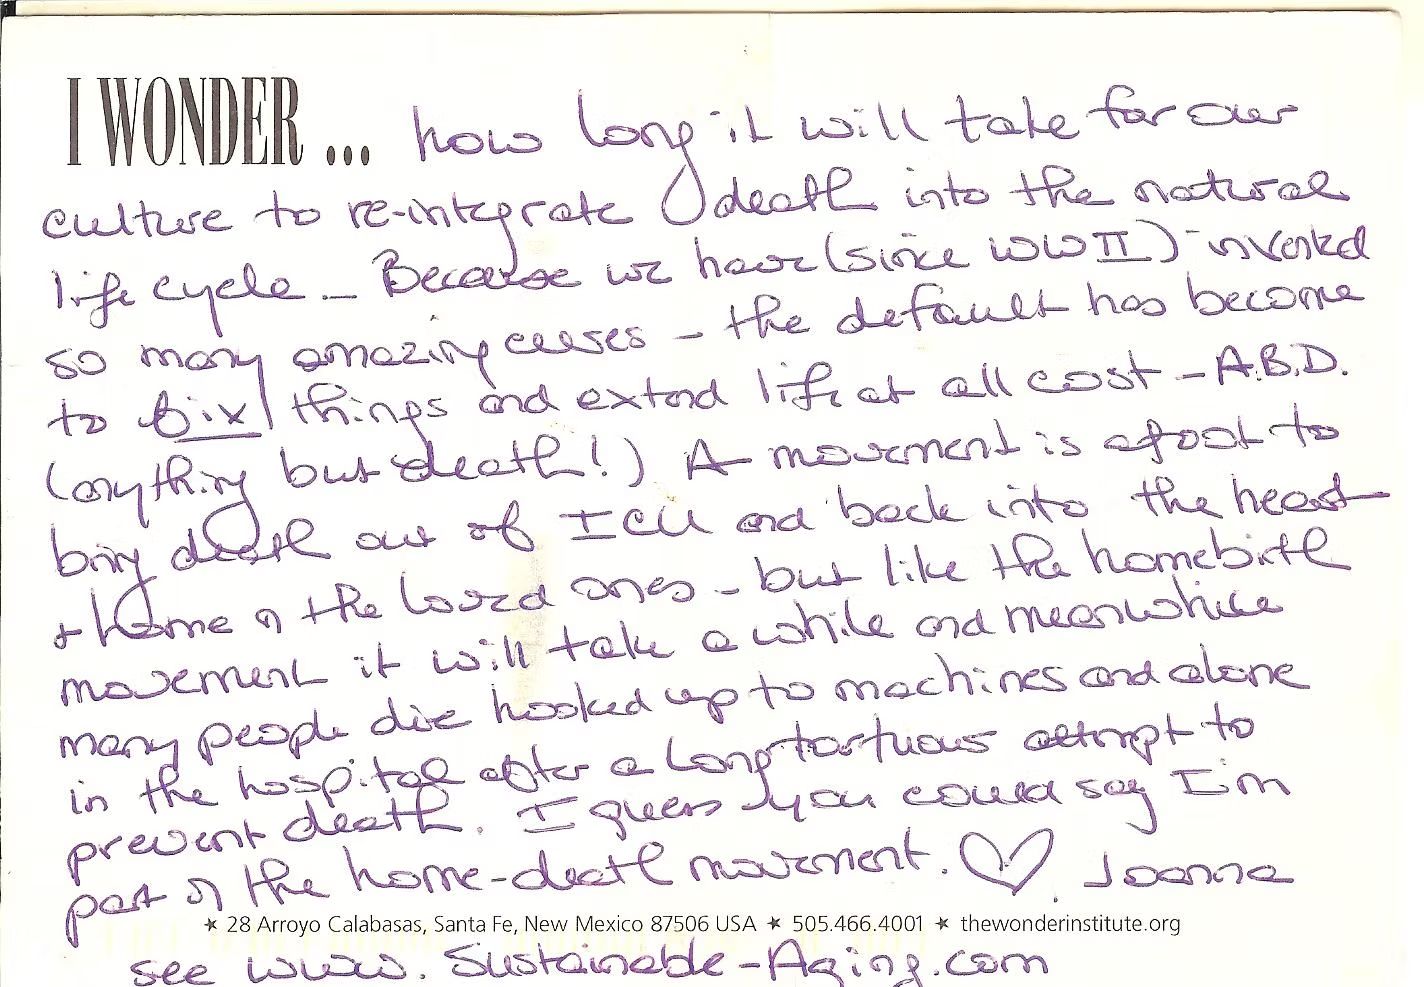 I WONDER... how long it will take for our
culture to re-integrate death into the natural
life cycle — Because we have (since WWII) invented
so many amazing cures — the default has become
to fix things and extend life at all cost — A.B.D.
(anything but death!) A movement is afoot to
bring death out of ICU and back into the heart
+ home of the loved ones - but like the homebirth
movement it will take a while and meanwhile
many people die hooked up to machines and alone
in the hospital after a long tortuous attempt to
prevent death. I guess you could say I'm
part of the home-death movement. ♡ Joanna
★ 28 Arroyo Calabasas, Santa Fe, New Mexico 87506 USA ★ 505.466.4001 ★ thewonderinstitute.org
see www.Sustainable-Aging.com